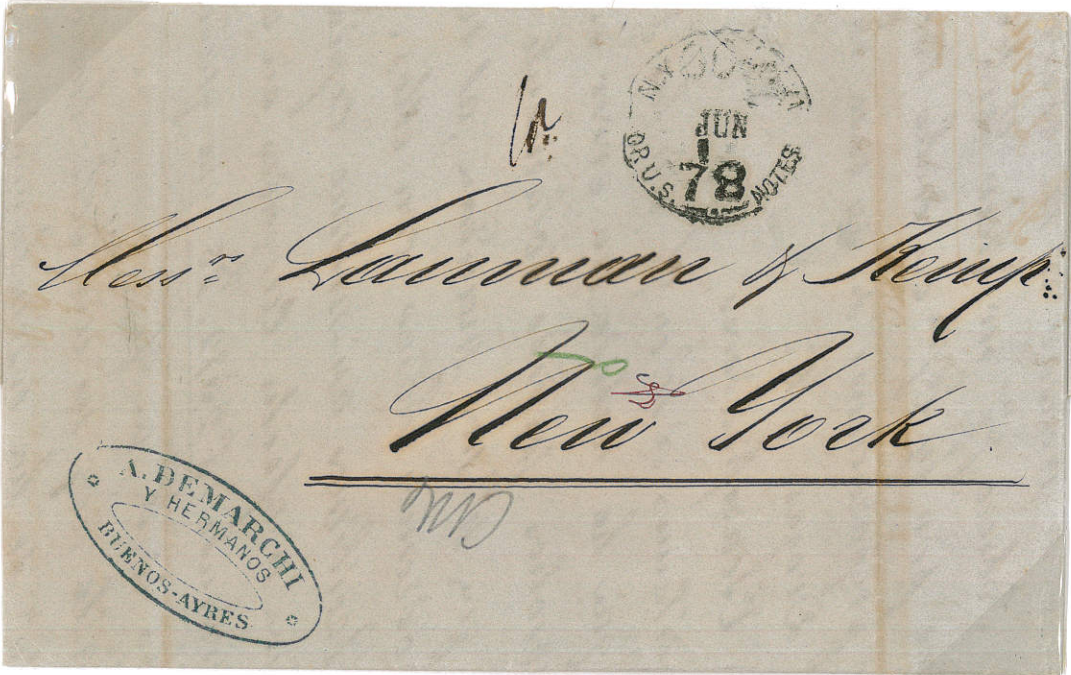 N.Y.
JUN
78
OR U.S. NOTES
Mess.rs Lanman & Kemp
New York
A. DEMARCHI
Y HERMANOS
BUENOS-AYRES